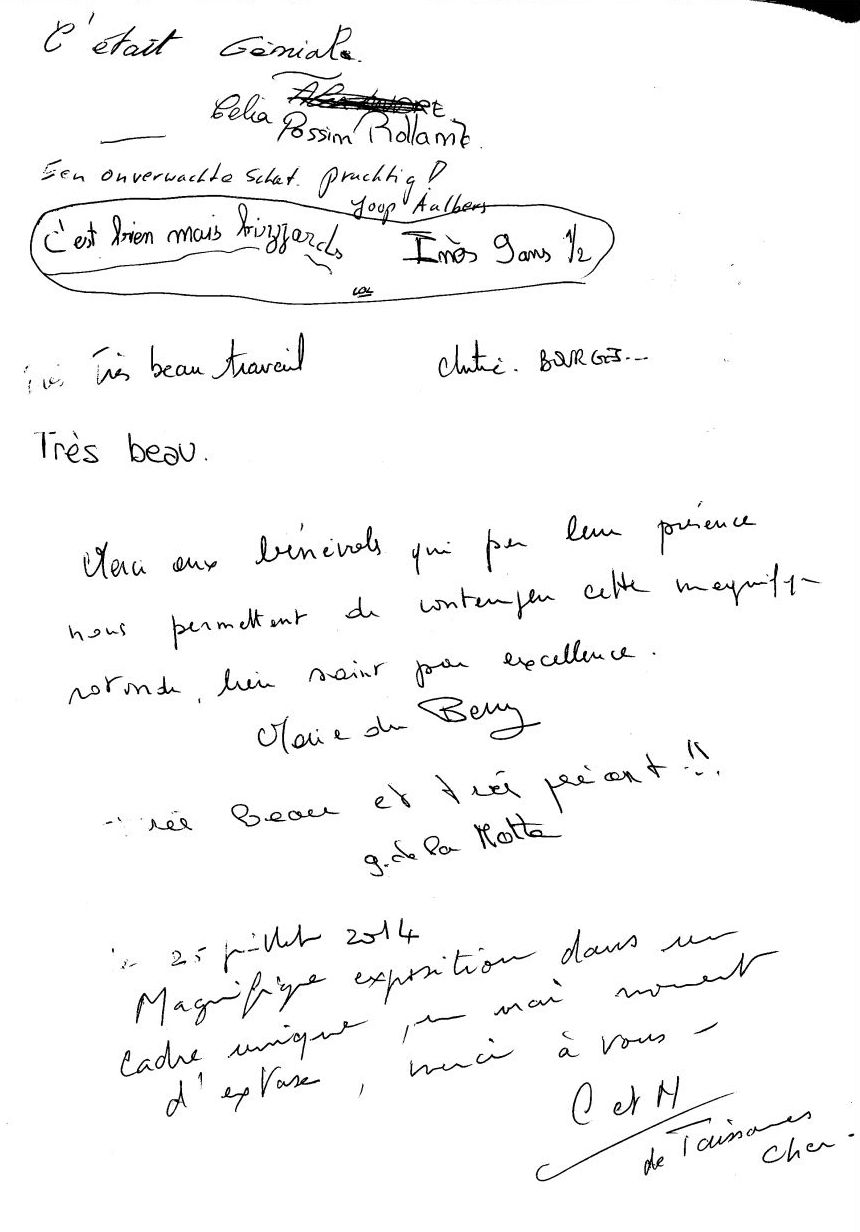 C'était Géniale.
Celia
Possim Rollant.
Een onverwachte schat. prachtig!
Joop Aalbers
C'est bien mais bizzards Inès 9 ans 1/2
LOL
Très beau travail BOURGES...
Très beau.
Merci aux bénévols qui par leur présence
nous permettent de contempler cette magnifiq
rotonde, lieu saint par excellence.
Marie du Berry
Très Beau et très priant !!
g. de la Motte
le 25 juillet 2014
Magnifique exposition dans un
cadre unique, un vrai moment
d'extase, merci à vous -
C et M
de Toissanes
Cher.